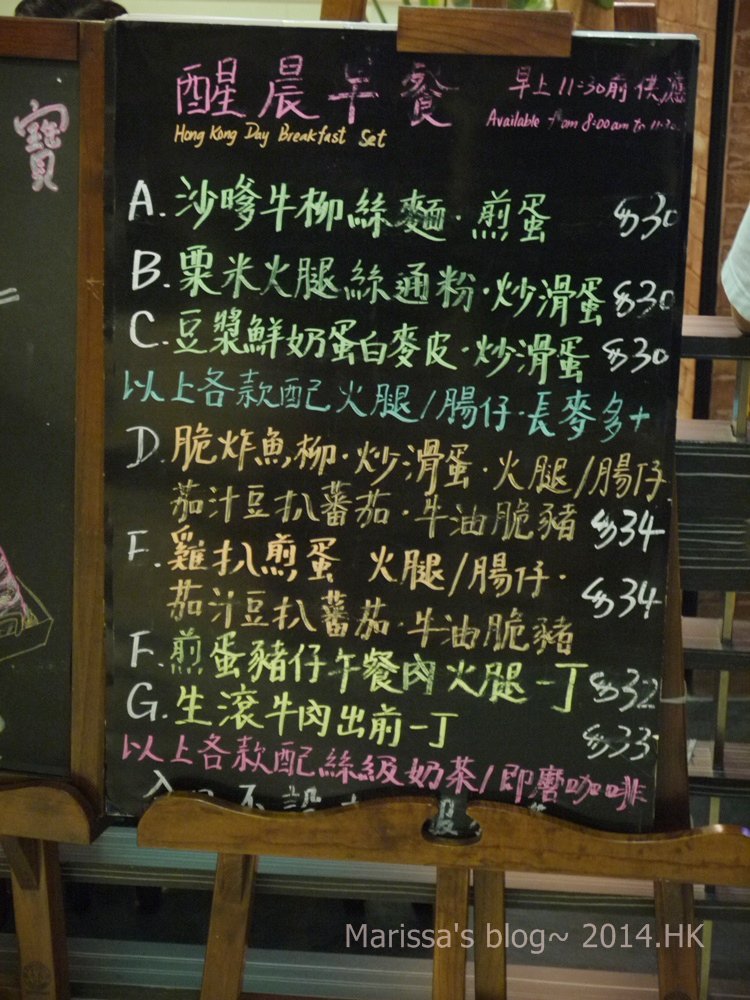 寶
醒晨早餐
早上11:30前供應
Hong Kong Day Breakfast Set
Available from 8:00am to 11:30
A. 沙嗲牛柳絲麵·煎蛋 $30
B. 粟米火腿絲通粉·炒滑蛋 $30
C. 豆漿鮮奶蛋白麥皮·炒滑蛋 $30
以上各款配火腿/腸仔·長麥多士
D. 脆炸魚柳·炒滑蛋·火腿/腸仔
茄汁豆扒蕃茄·牛油脆豬 $34
E. 雞扒煎蛋 火腿/腸仔·
茄汁豆扒蕃茄·牛油脆豬 $34
F. 煎蛋豬仔午餐肉火腿一丁 $32
G. 生滾牛肉出前一丁 $33
以上各款配絲級奶茶/即磨咖啡
Marissa's blog~ 2014.HK